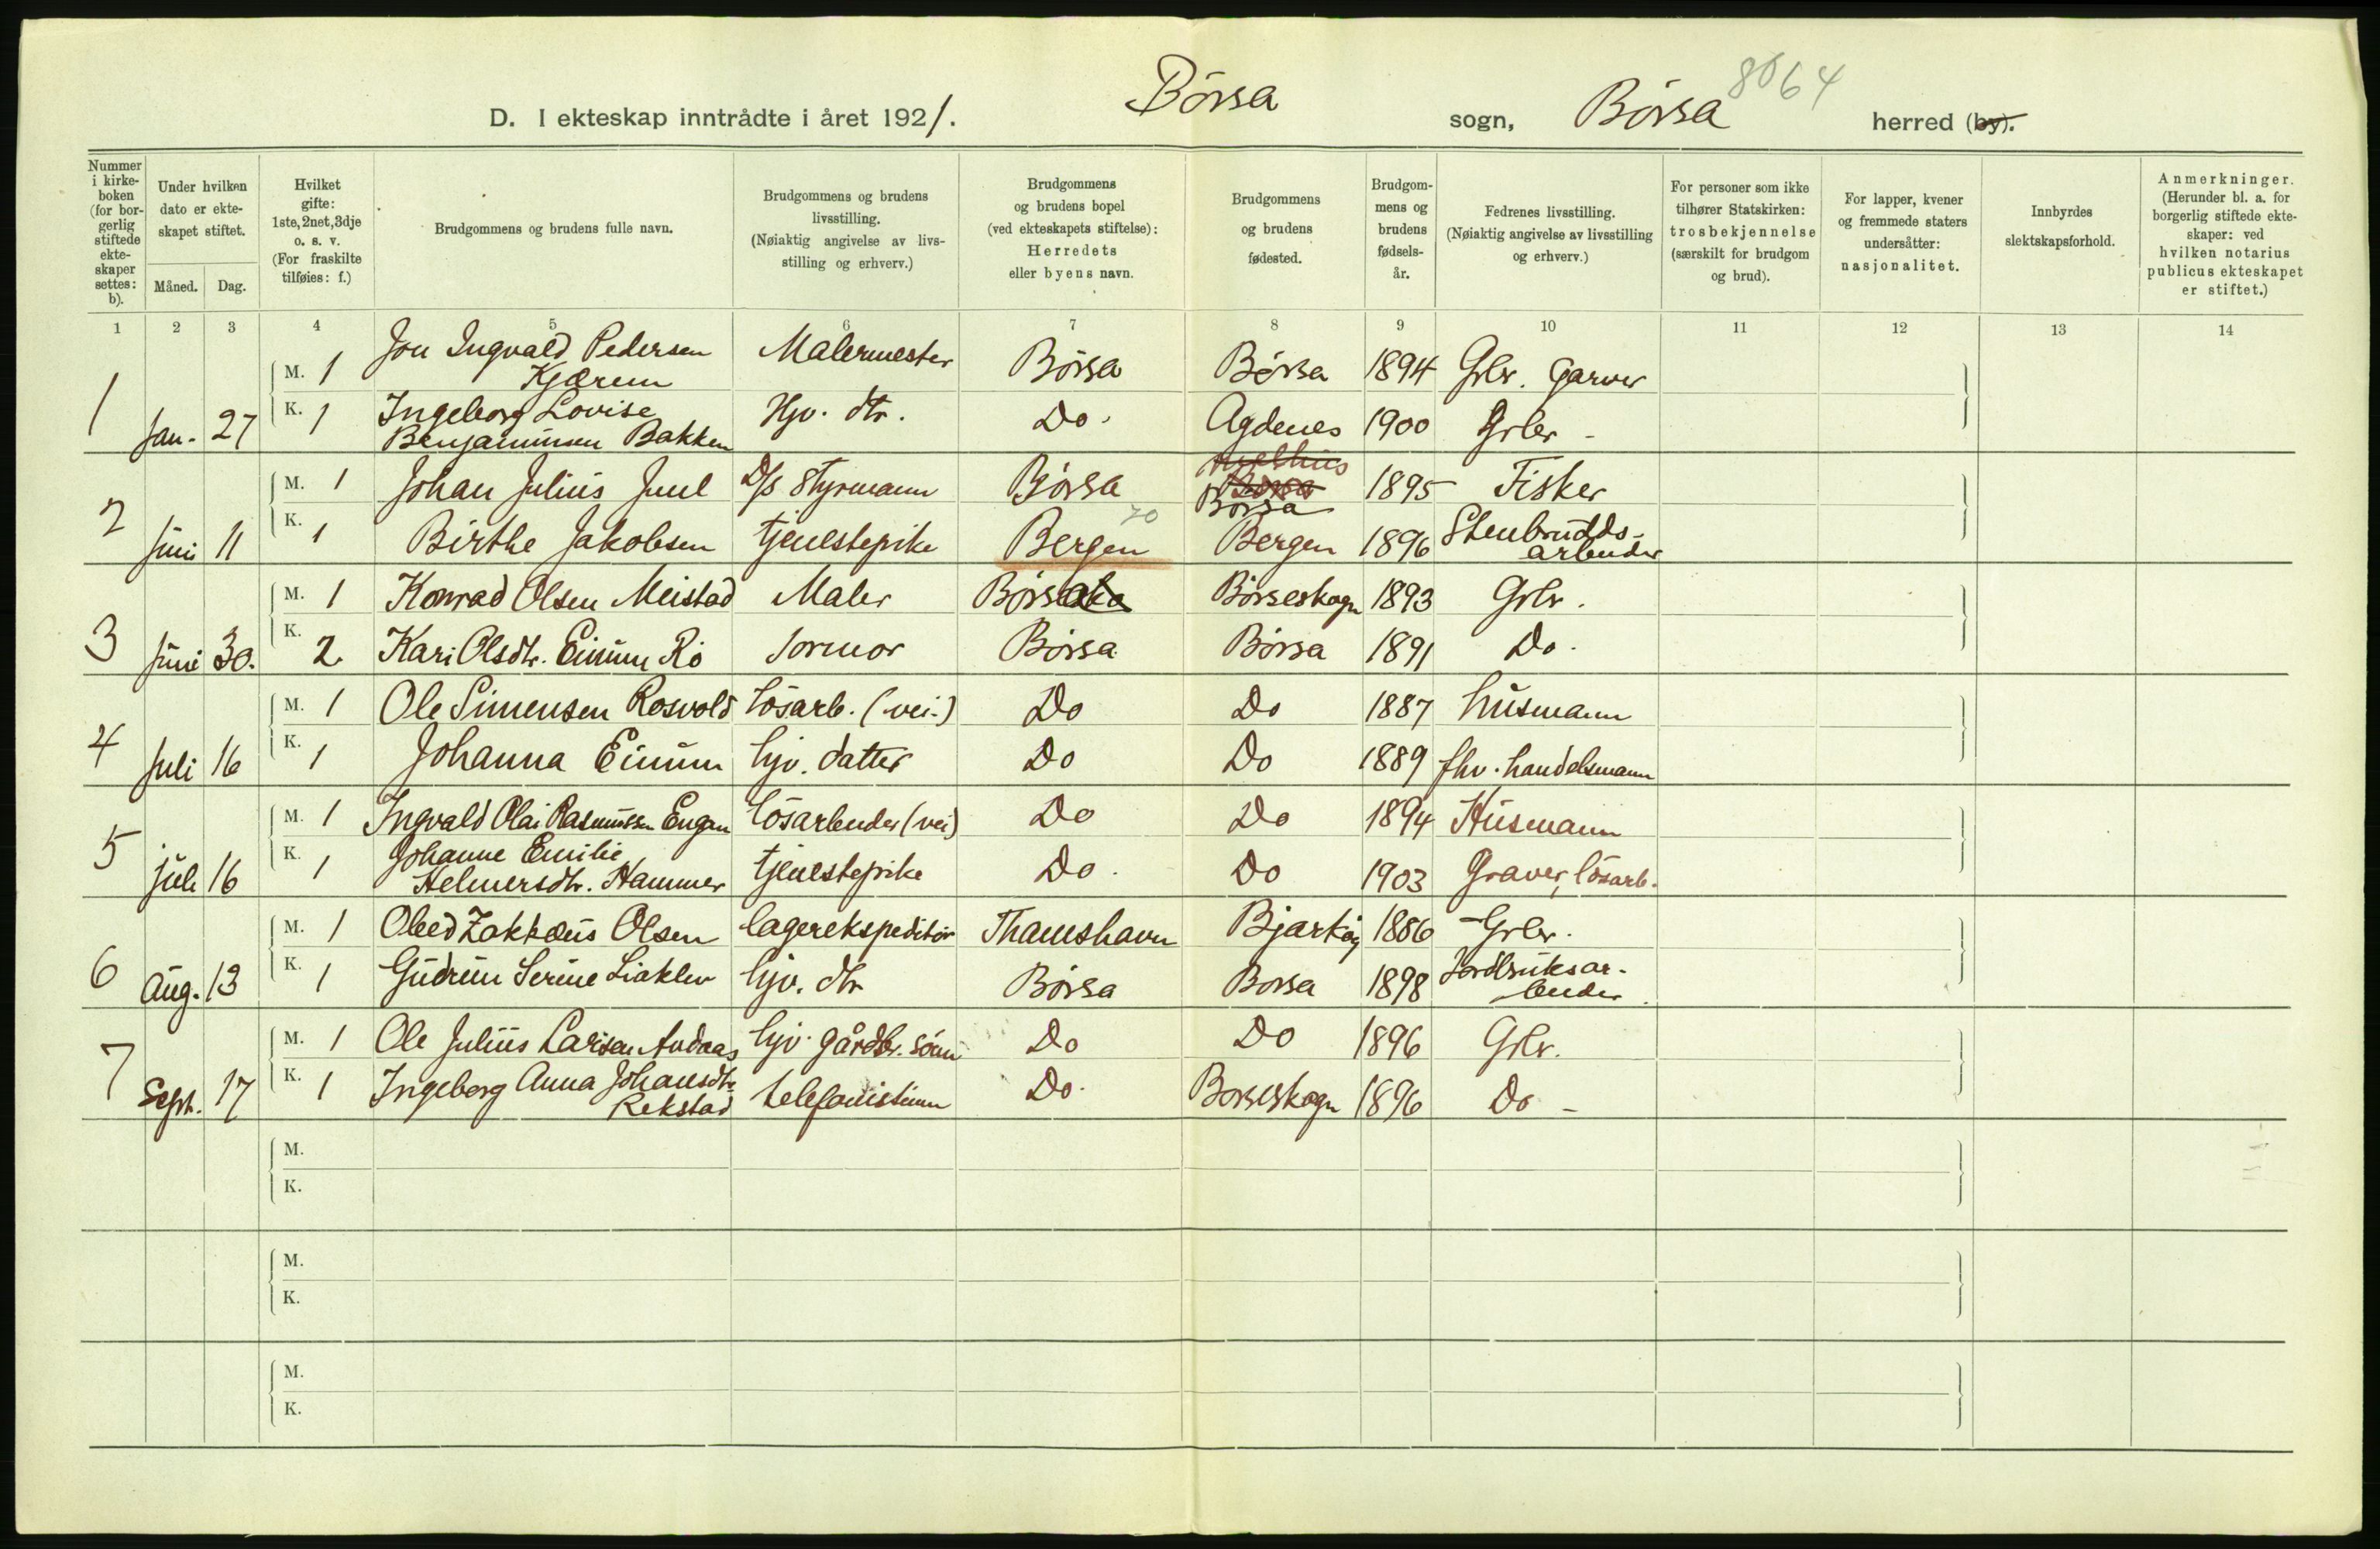 8064
D. I ekteskap inntrådte i året 1921. Börsa sogn, Börsa herred (by).
Nummer i kirkeboken (for borgerlig stiftede ekteskaper settes: b).
Under hvilken dato er ekteskapet stiftet.
Måned. Dag.
Hvilket gifte: 1ste, 2net, 3dje o. s. v. (For fraskilte tilføies: f.)
Brudgommens og brudens fulle navn.
Brudgommens og brudens livsstilling. (Nøiaktig angivelse av livsstilling og erhverv.)
Brudgommens og brudens bopel (ved ekteskapets stiftelse): Herredets eller byens navn.
Brudgommens og brudens fødested.
Brudgommens og brudens fødselsår.
Fedrenes livsstilling. (Nøiaktig angivelse av livsstilling og erhverv.)
For personer som ikke tilhører Statskirken: trosbekjennelse (særskilt for brudgom og brud).
For lapper, kvener og fremmede staters undersåtter: nasjonalitet.
Innbyrdes slektskapsforhold.
Anmerkninger. (Herunder bl. a. for borgerlig stiftede ekteskaper: ved hvilken notarius publicus ekteskapet er stiftet.)
1 2 3 4 5 6 7 8 9 10 11 12 13 14
1 Jan. 27
M. 1 Jon Ingvald Pedersen Kjærem Malermester Börsa Börsa 1894 Grbr. Garver
K. 1 Ingeborg Lovise Benjaminsen Bakken Hjv. dtr. Do. Agdenes 1900 Grbr -
2 Juni 11
M. 1 Johan Julius Juul D/s Styrmann Börsa Börsa 1895 Fisker
K. 1 Birthe Jakobsen tjenestepike Bergen 20 Bergen 1896 Stenbrudds-arbeider
3 Juni 30.
M. 1 Konrad Olsen Meistad Maler Börsa Börseskogn 1893 Grbr.
K. 2 Kari Olsdtr. Eimum Rö Jormor Börsa Börsa 1891 Do.
4 Juli 16
M. 1 Ole Simensen Rosvold lösarb. (vei.) Do Do 1887 husmann
K. 1 Johanna Eimum hjv. datter Do Do 1889 fhv. handelsmann
5 juli 16
M. 1 Ingvald Olai Rasmussen Engan lösarbeider (vei) Do Do 1894 Husmann
K. 1 Johanne Emilie Helmersdtr. Hammer tjenestepike Do. Do 1903 Graver, lösarb.
6 Aug. 13
M. 1 Obed Zakkæus Olsen lagerekspeditör Thamshavn Bjarköy 1886 Grbr.
K. 1 Gudrun Serine Liaklev hjv. dtr Börsa Borsa 1898 Jordbruksar-beider
7 Sept. 17
M. 1 Ole Julius Larsen Andaas hjv. gårdbr. sönn Do Do 1896 Grbr.
K. 1 Ingeborg Anna Johansdtr. Rekstad telefonistinne Do. Borseskogn 1896 Do -
M.
K.
M.
K.
M.
K.